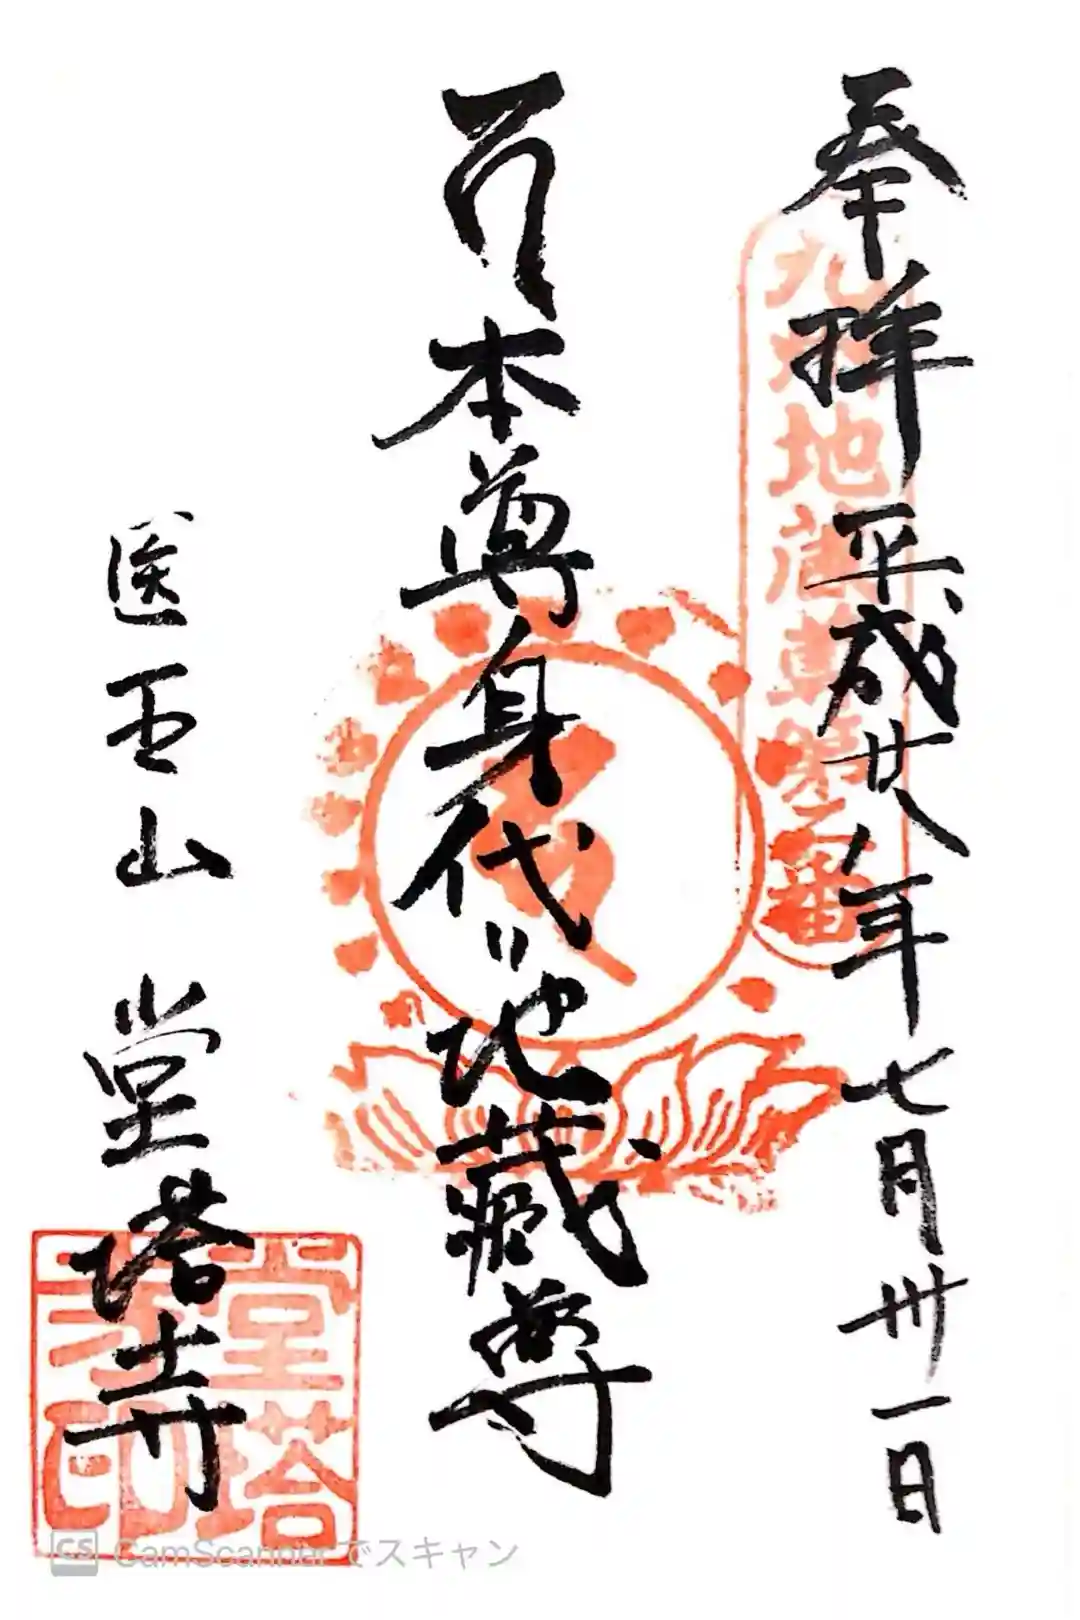 奉拝 平成廿八年七月卅一日
九州地蔵尊第二番
本尊身代り地蔵尊
医王山 堂塔寺
堂塔寺印
CS CamScannerでスキャン